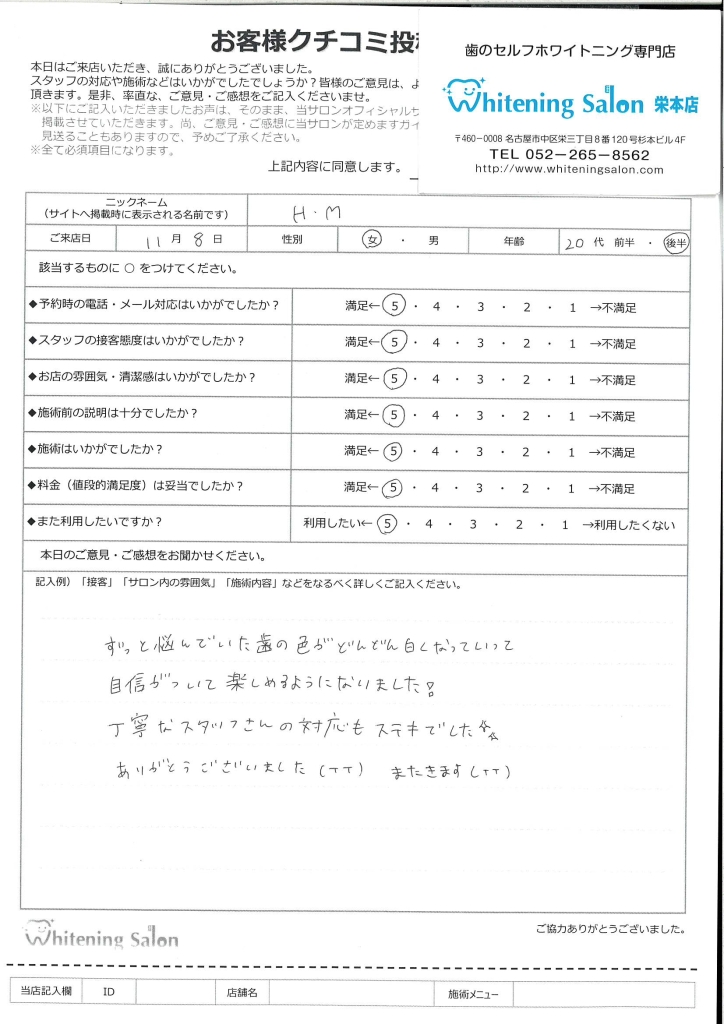 お客様クチコミ投
本日はご来店いただき、誠にありがとうございました。
スタッフの対応や施術などはいかがでしたでしょうか？皆様のご意見は、よ
頂きます。是非、率直な、ご意見・ご感想をご記入くださいませ。
※以下にご記入いただきましたお声は、そのまま、当サロンオフィシャルサ
掲載させていただきます。尚、ご意見・ご感想に当サロンが定めますガイ
見送ることもありますので、予めご了承ください。
※全て必須項目になります。
上記内容に同意します。
歯のセルフホワイトニング専門店
Whitening Salon 栄本店
〒460-0008 名古屋市中区栄三丁目8番120号杉本ビル4F
TEL 052-265-8562
http://www.whiteningsalon.com
ニックネーム
（サイトへ掲載時に表示される名前です）
H・M
ご来店日 11 月 8 日 性別 女 ・ 男 年齢 20 代 前半 ・ 後半
該当するものに ○ をつけてください。
◆予約時の電話・メール対応はいかがでしたか？ 満足← 5 ・ 4 ・ 3 ・ 2 ・ 1 →不満足
◆スタッフの接客態度はいかがでしたか？ 満足← 5 ・ 4 ・ 3 ・ 2 ・ 1 →不満足
◆お店の雰囲気・清潔感はいかがでしたか？ 満足← 5 ・ 4 ・ 3 ・ 2 ・ 1 →不満足
◆施術前の説明は十分でしたか？ 満足← 5 ・ 4 ・ 3 ・ 2 ・ 1 →不満足
◆施術はいかがでしたか？ 満足← 5 ・ 4 ・ 3 ・ 2 ・ 1 →不満足
◆料金（値段的満足度）は妥当でしたか？ 満足← 5 ・ 4 ・ 3 ・ 2 ・ 1 →不満足
◆また利用したいですか？ 利用したい← 5 ・ 4 ・ 3 ・ 2 ・ 1 →利用したくない
本日のご意見・ご感想をお聞かせください。
記入例）「接客」「サロン内の雰囲気」「施術内容」などをなるべく詳しくご記入ください。
ずっと悩んでいた歯の色がどんどん白くなっていって
自信がついて楽しめるようになりました！
丁寧なスタッフさんの対応もステキでした☆☆
ありがとうございました（TT） またきます（TT）
Whitening Salon
ご協力ありがとうございました。
当店記入欄 ID 店舗名 施術メニュー